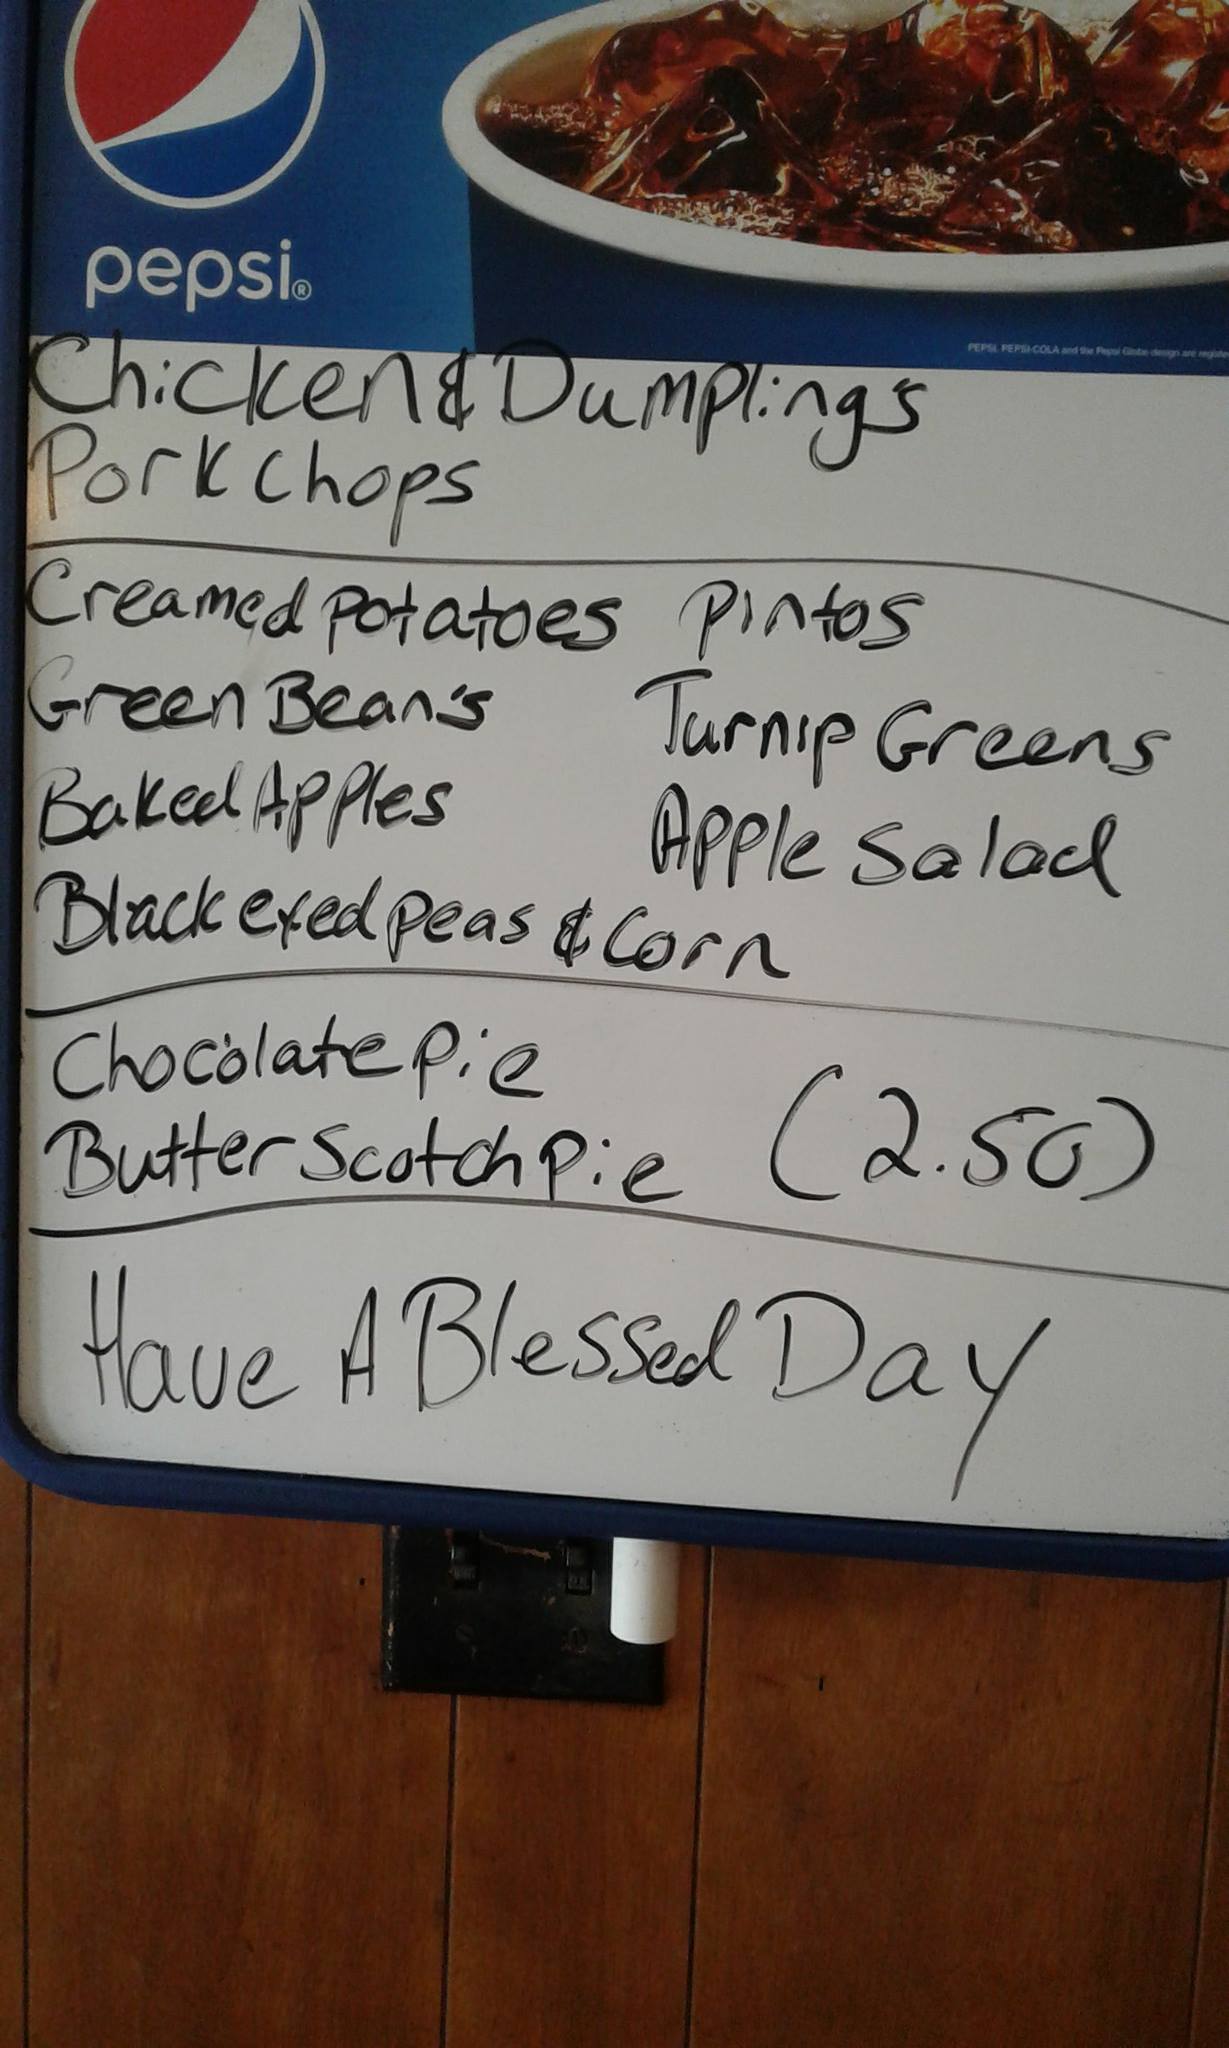 pepsi®
PEPSI, PEPSI-COLA and the Pepsi Globe design are
Chicken & Dumpling's
Pork Chops
Creamed potatoes pintos
Green Bean's Turnip Greens
Baked Apples Apple Salad
Black eyed peas & Corn
Chocolate pie
Butter Scotch pie (2.50)
Have A Blessed Day